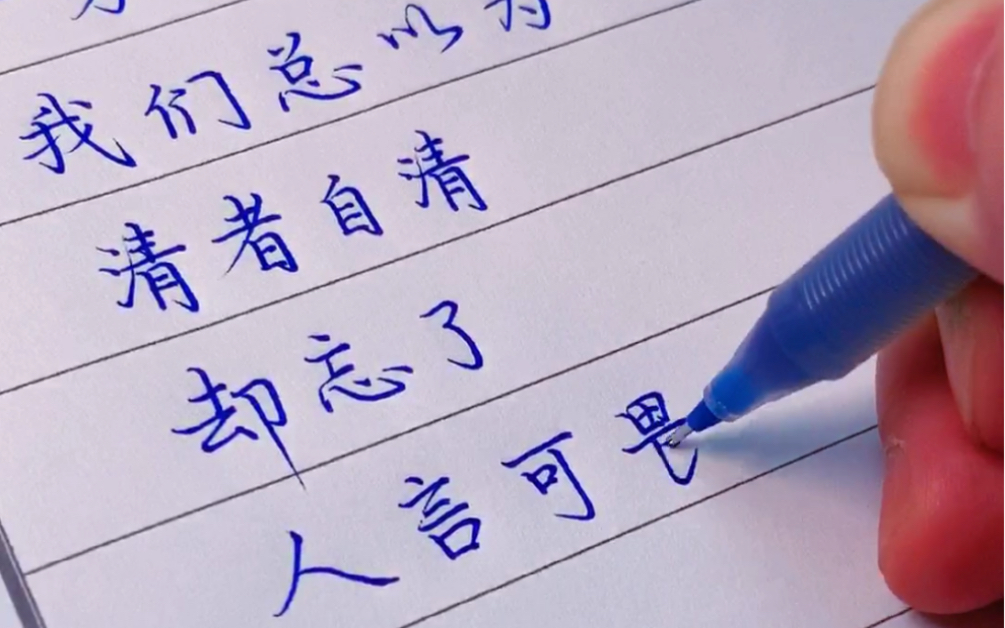 我们总以为
清者自清
却忘了
人言可畏